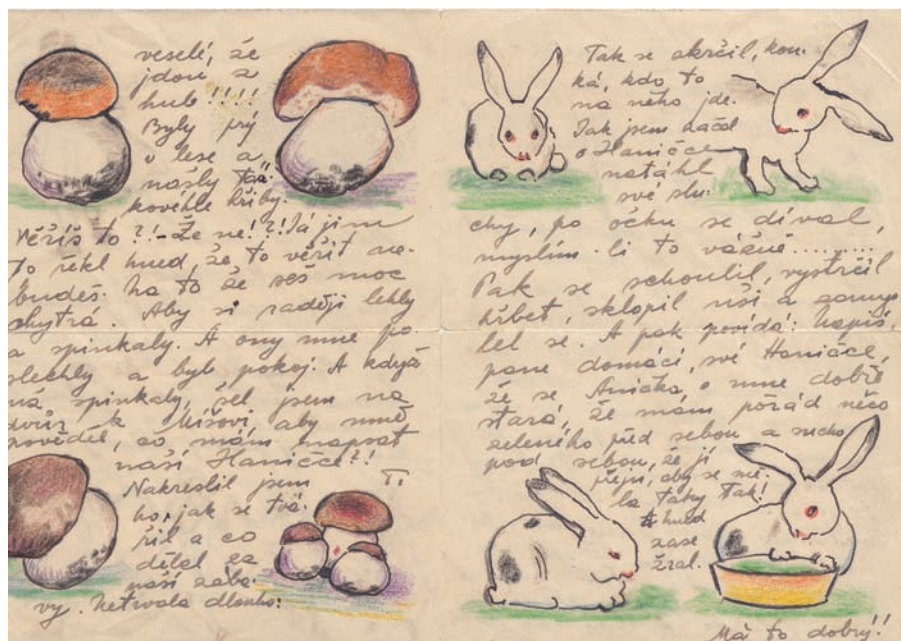 veselé, že
jdou z
hub!!!!
Byly prý
v lese a
našly
kovéhle hřiby.
Věříš to?!-Že ne!?! Já jim
to řekl hned, že to věřit ne-
budeš. Na to že seš moc
chytrá. Aby si raději lehly
a spinkaly. A ony mne po-
slechly a byl pokoj. A když
už spinkaly, šel jsem na
dvůr k Míšovi, aby mně
pověděl, co mám napsat
naší Haničce?!
Nakreslil jsem Ti
ho, jak se tvá-
řil a co
dělal za
naší zába-
vy. Netrvala dlouho:
Tak se skrčil, kou-
ká, kdo to
na něho jde.
Jak jsem začal
o Haničce
natáhl
své slu-
chy, po očku se díval,
myslím-li to vážně.........
Pak se schoulil, vystrčil
hřbet, sklopil uši a zamys-
lel se. A pak povídá: Napiš,
pane domácí, své Haničce,
že se Anička o mne dobře
stará, že mám pořád něco
zeleného před sebou a sucho
pod sebou, že jí
přeju, aby se mě-
la taky tak!
A hned
zase
žral.
Má to dobrý!!